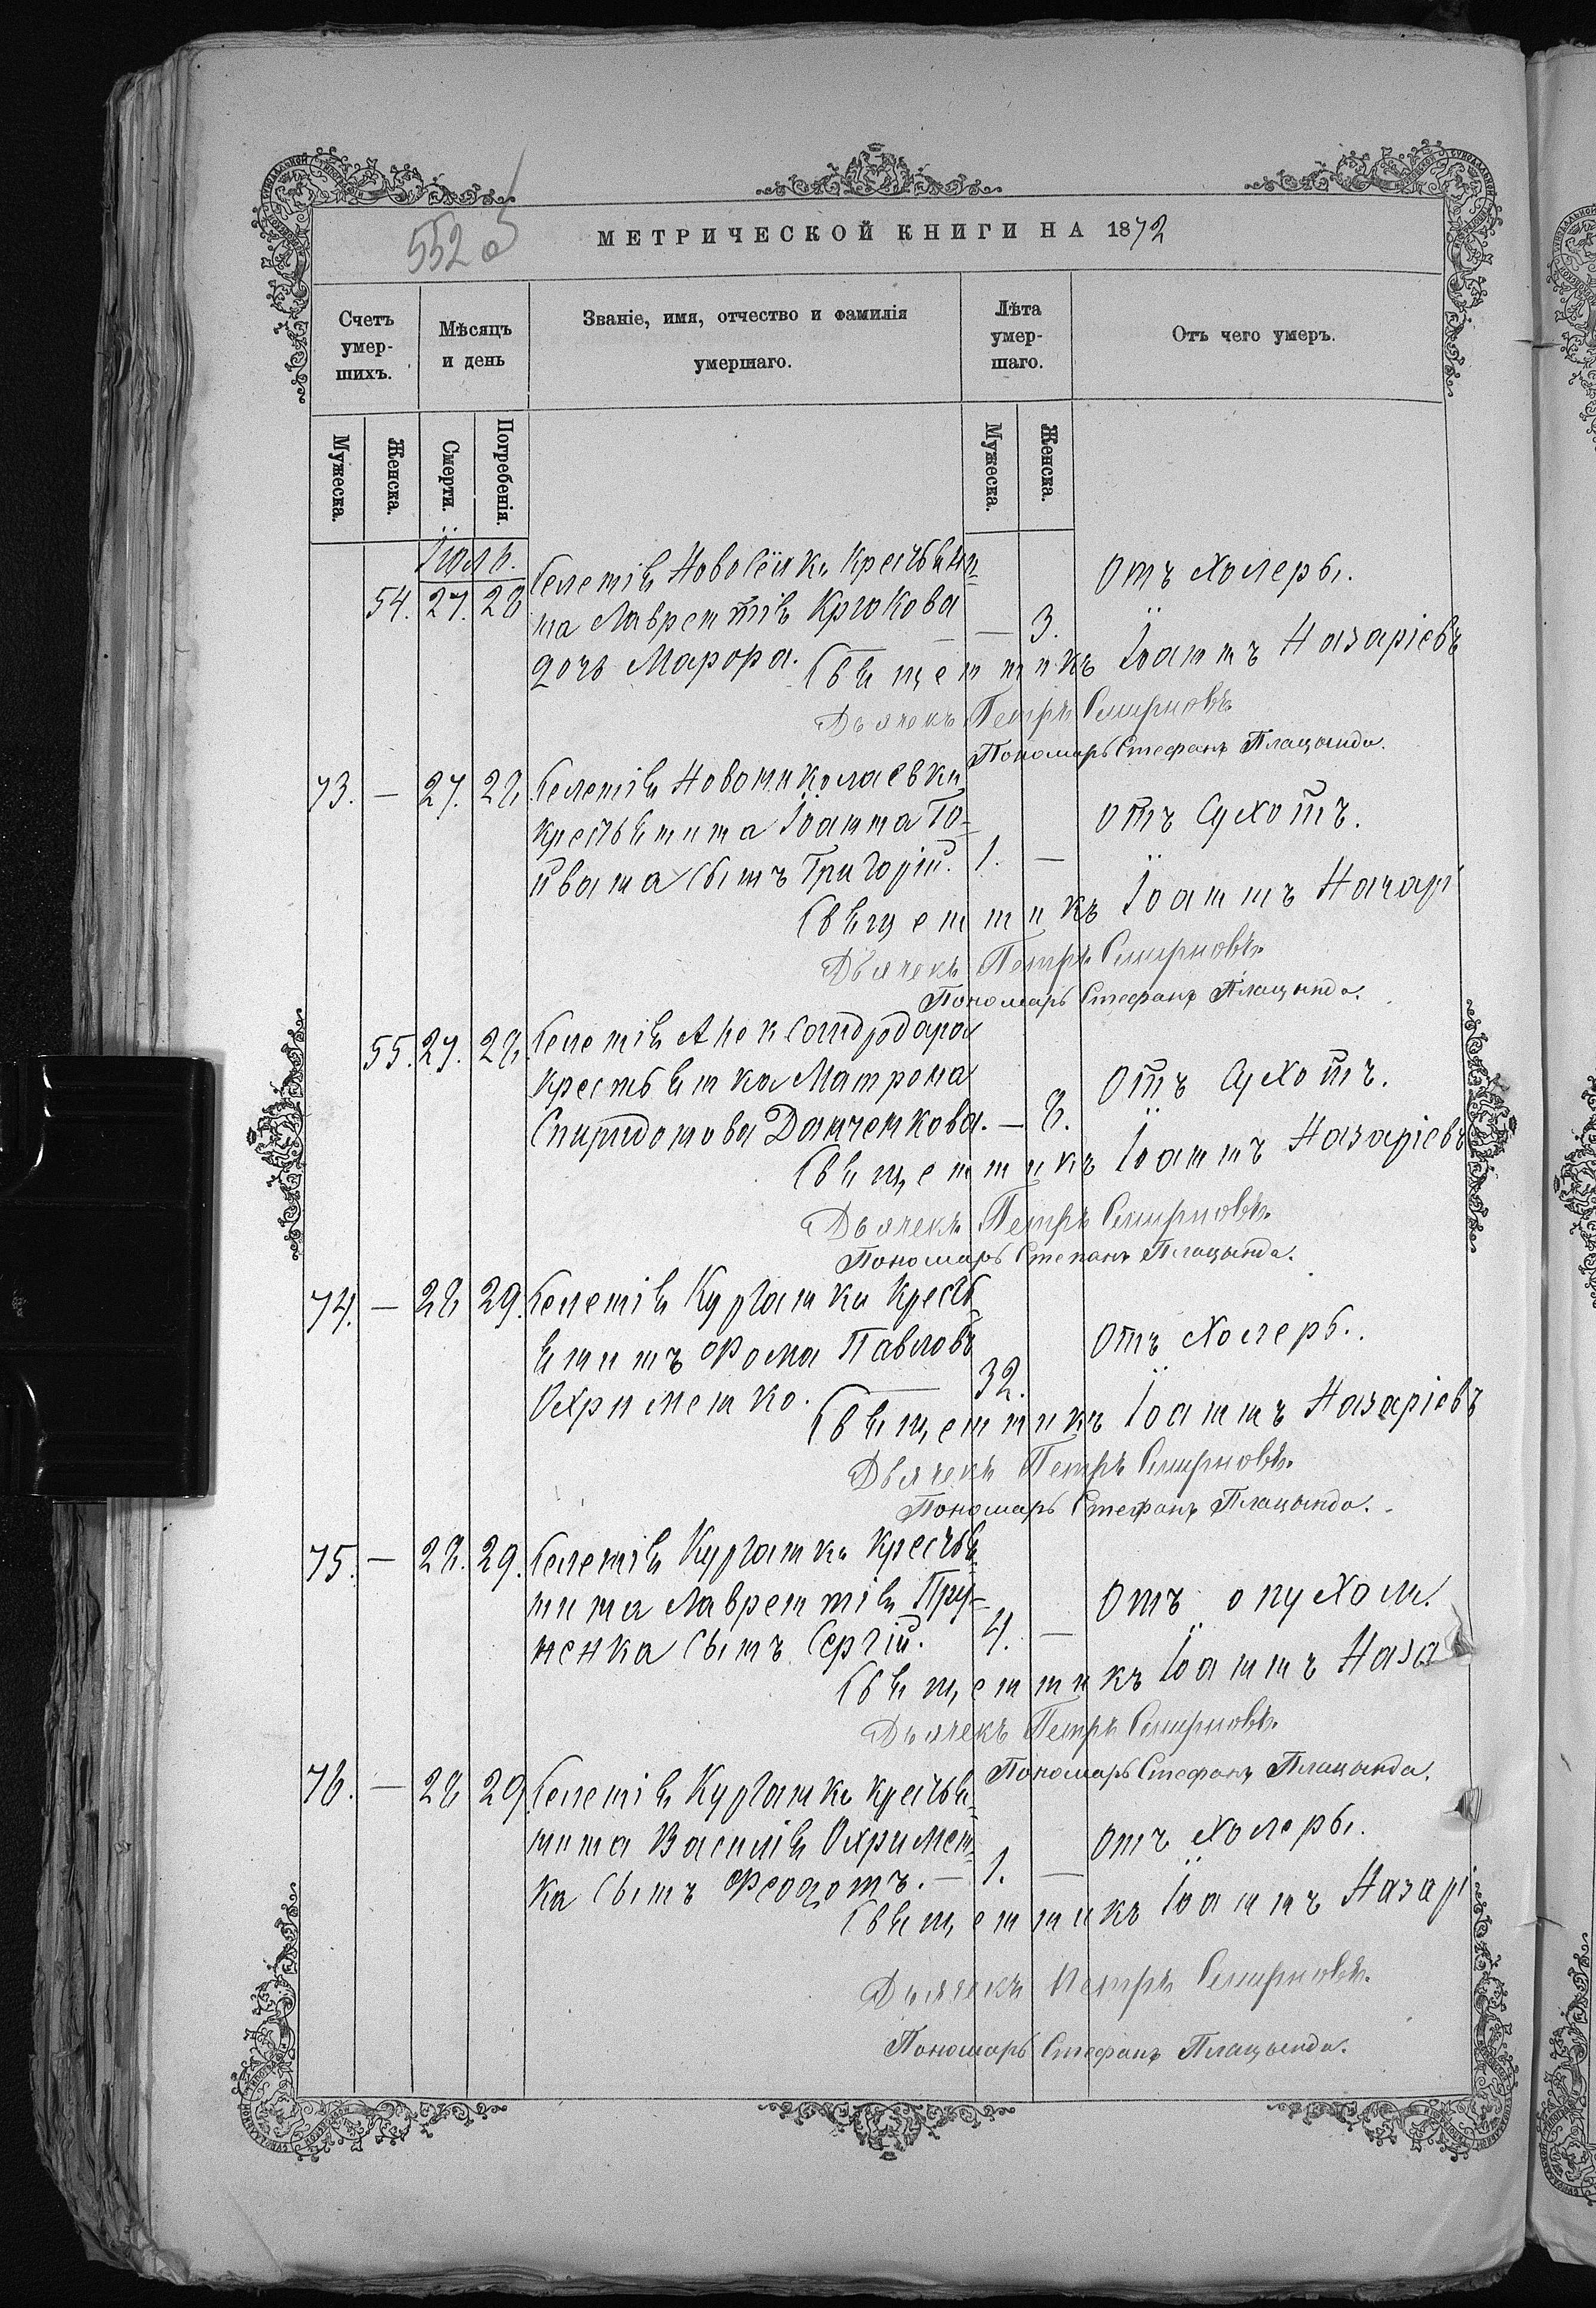 552 об
МЕТРИЧЕСКОЙ КНИГИ НА 1872
Счетъ умер-шихъ.
Мѣсяцъ и день
Званіе, имя, отчество и фамилія умершаго.
Лѣта умер-шаго.
Отъ чего умеръ.
Мужеска.
Женска.
Смерти.
Погребенія.
Мужеска.
Женска.
Іюль.
54. 27. 28 Селенія Новосёлки крестьяни=
на Лаврентія Крюкова — 3. Отъ холеры.
дочь Марфра. Священникъ Іоаннъ Назаріевъ
Дьячекъ Петръ Смирновъ.
Пономарь Стефанъ Плацында.
73. — 27. 28. Селенія Новониколаевки
крестьянина Іоанна Го-
йвана сынъ Григорій. 1. — отъ сухотъ.
Священникъ Іоаннъ Назарі
Дьячекъ Петръ Смирновъ.
Пономарь Стефанъ Плацында.
55. 27. 28. Селенія Александродара
крестьянка Матрона
Спиридонова Данченкова. — 8. Отъ сухотъ.
Священникъ Іоаннъ Назаріевъ
Дьячекъ Петръ Смирновъ.
Пономарь Степанъ Плацында.
74. — 28 29. Селенія Курганки кресть
янинъ Фома Павловъ
Охрименко. 32. Отъ холеры.
Священникъ Іоаннъ Назаріевъ
Дьячекъ Петръ Смирновъ.
Пономарь Стефанъ Плацында.
75. — 28. 29. Селенія Курганки крестья
нина Лаврентія Пру-
ненка сынъ Сергій. 4. — Отъ опухоли.
Священникъ Іоаннъ Наза
Дьячекъ Петръ Смирновъ.
Пономарь Стефанъ Плацында.
76. — 28 29. Селенія Курганки крестья
нина Василія Охримен=
ка сынъ Феодотъ. — 1. — отъ холеры.
Священникъ Іоаннъ Назарі
Дьячекъ Петръ Смирновъ.
Пономарь Стефанъ Плацында.